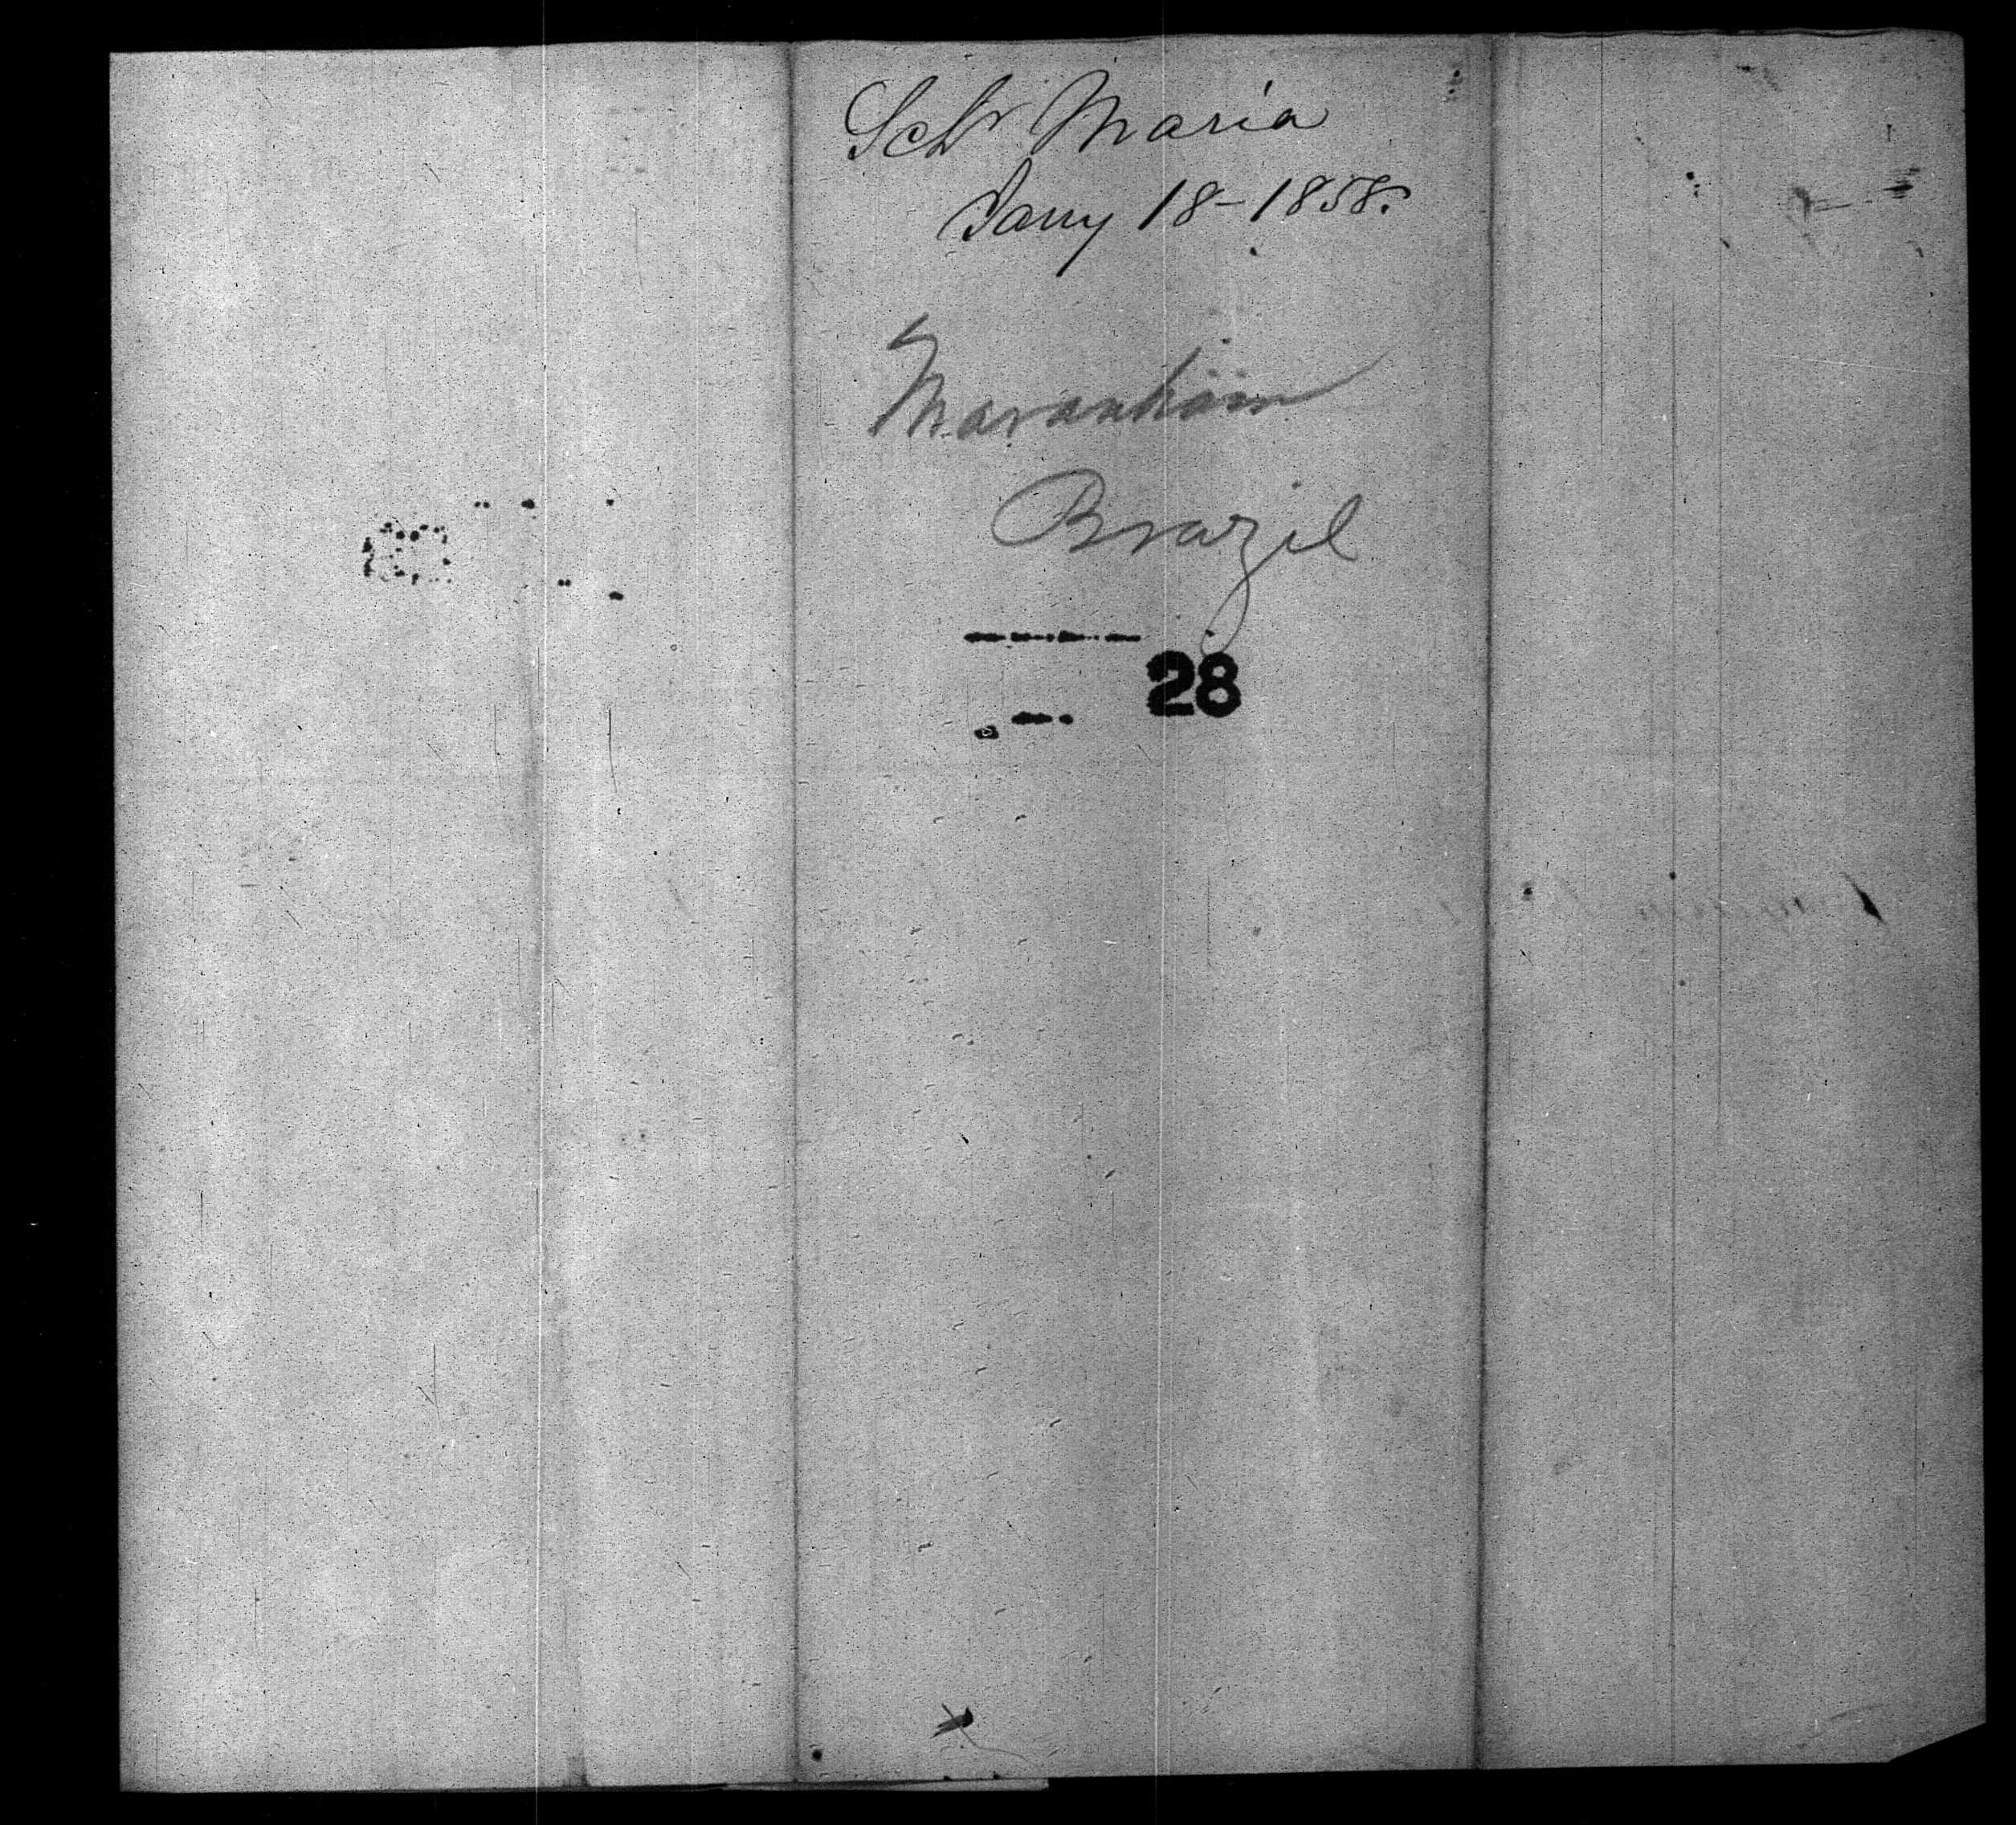 Schr Maria
Jany 18-1858.
Maranham
Brazil
28